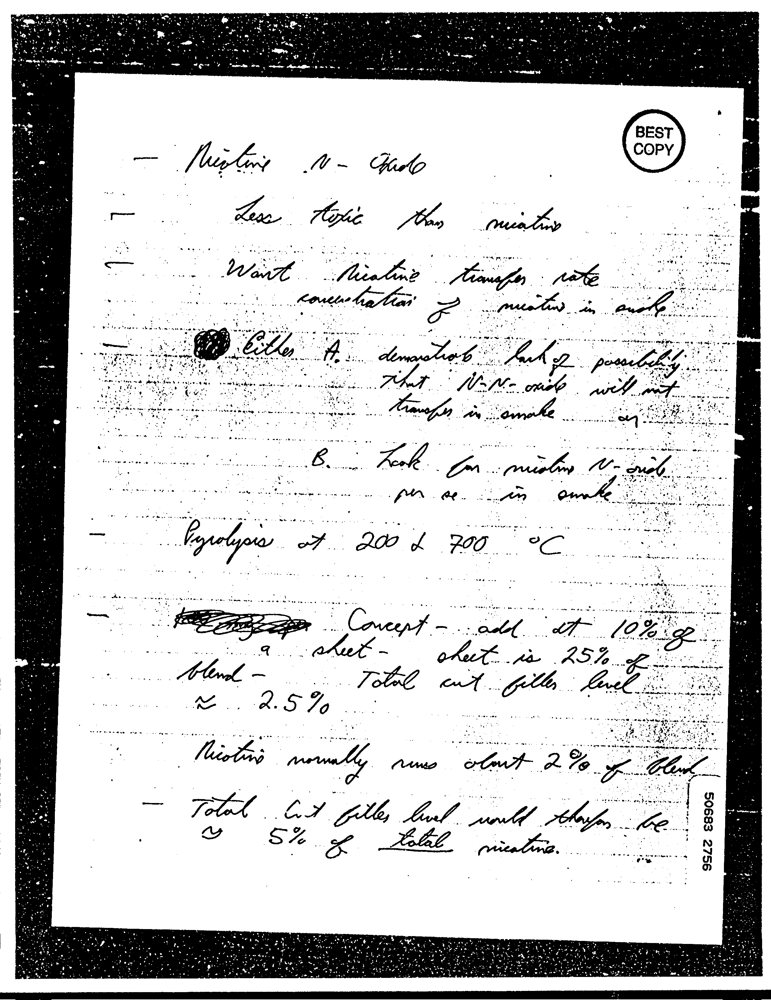 BEST
COPY
— Nicotine N-Oxide
— Less toxic than nicotine
— Want Nicotine transfer rate
concentration of nicotine in smoke
— Either A. demonstrate lack of possibility
that N-N-oxide will not
transfer in smoke or
B. Look for nicotine N-oxide
per se in smoke
— Pyrolysis at 200 & 700 °C
— Concept - add at 10% of
a sheet - sheet is 25% of
blend - Total cut filler level
≈ 2.5%
Nicotine normally runs about 2% of blend
— Total cut filler level would therefore be
≈ 5% of total nicotine.
50683 2756